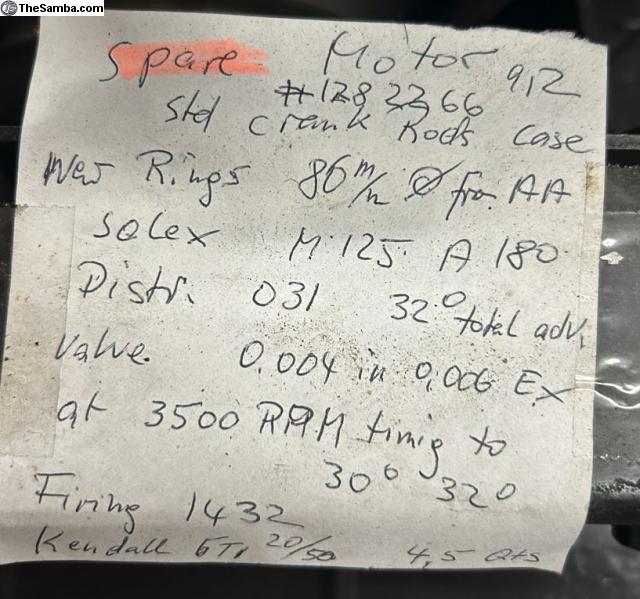 TheSamba.com
Spare Motor 912
#1282266
Std Crank Rods Case
New Rings 86 m/m Ø from AA
Solex M 125 A 180
Distr. 031 32° total adv.
Valve 0.004 in 0,006 EX
at 3500 RPM timig to
30° 32°
Firing 1432
Kendall GT1 20/50 4,5 Qts